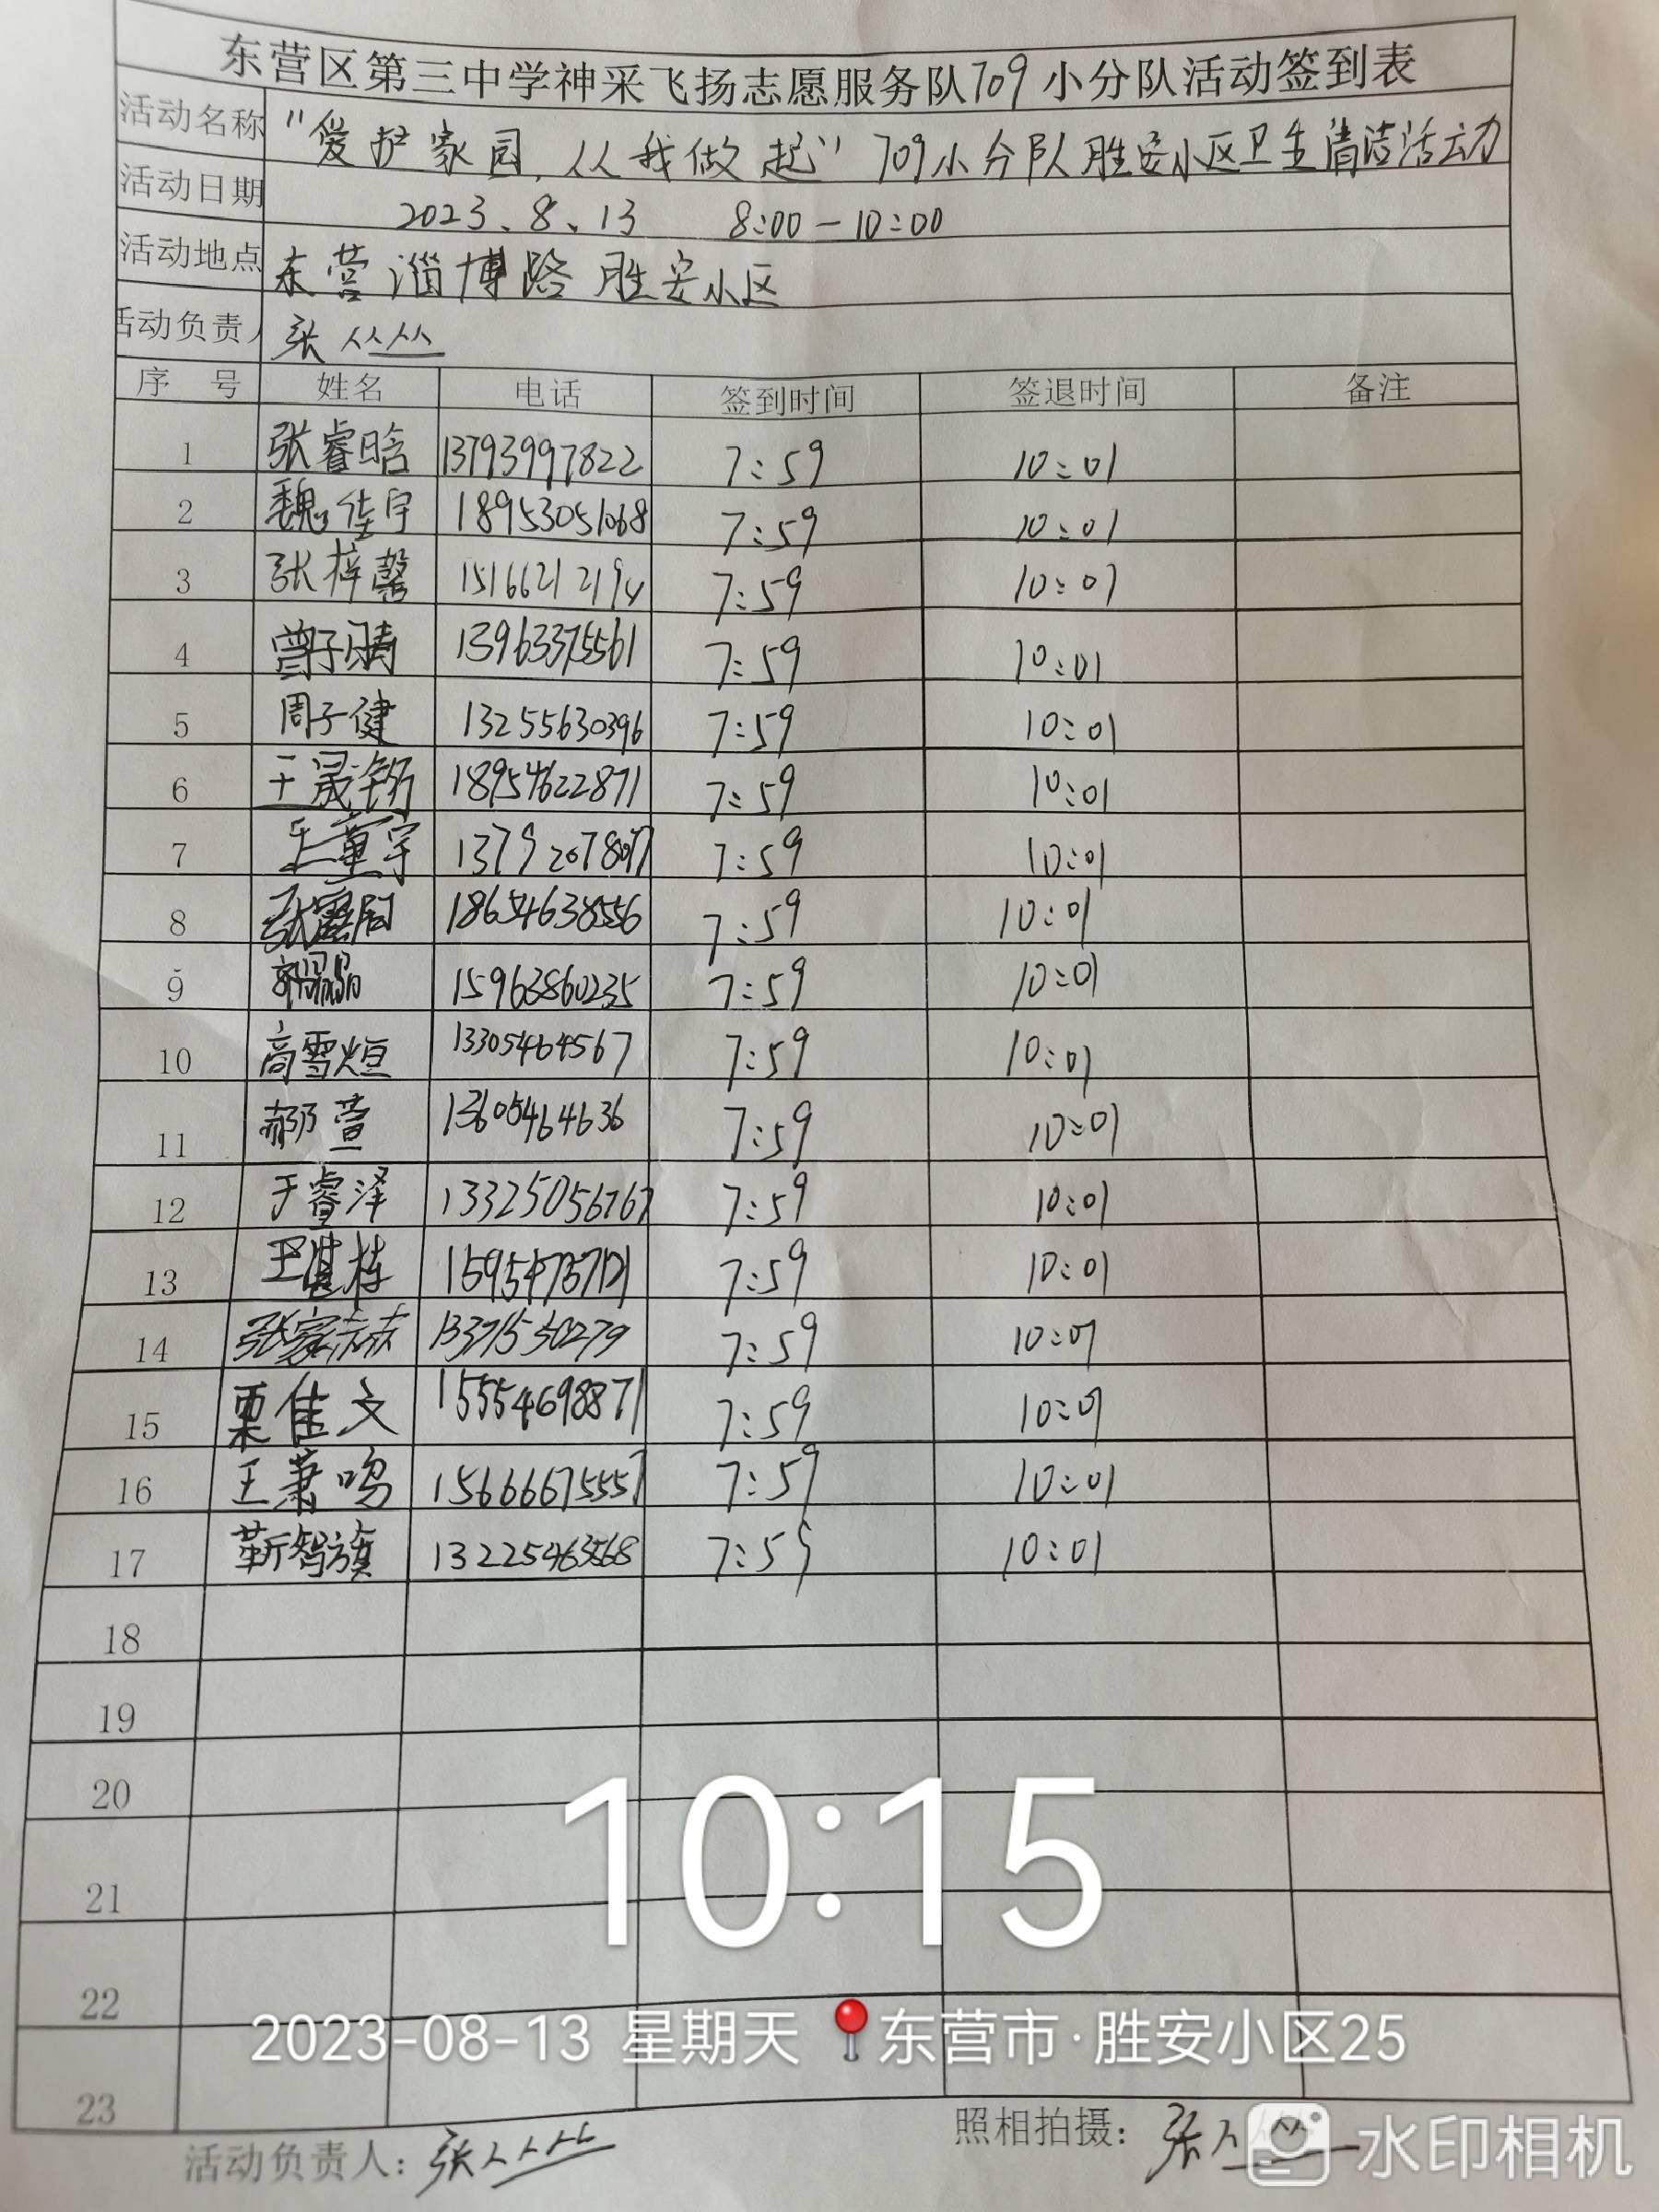 东营区第三中学神采飞扬志愿服务队709小分队活动签到表
活动名称 "爱护家园,从我做起" 709小分队胜安小区卫生清洁活动
活动日期 2023、8、13 8:00-10:00
活动地点 东营淄博路胜安小区
活动负责人 张从丛
序 号 姓名 电话 签到时间 签退时间 备注
1 张睿晗 13793997822 7:59 10:01
2 魏佳宇 18953051068 7:59 10:01
3 张梓馨 15166212194 7:59 10:01
4 曾子晴 13963375561 7:59 10:01
5 周子健 13255630396 7:59 10:01
6 王晟铭 18954622871 7:59 10:01
7 王董宇 7:59 10:01
8 张 18654638556 7:59 10:01
9 郭 15963860235 7:59 10:01
10 高雪烜 13305464567 7:59 10:01
11 郝萱 13605464636 7:59 10:01
12 于睿泽 13325056767 7:59 10:01
13 王 栋 7:59 10:01
14 张家赫 13371530279 7:59 10:01
15 栗佳文 15554698871 7:59 10:01
16 王萧鸣 15666675557 7:59 10:01
17 靳智旗 13225463568 7:59 10:01
18
19
20
21
22
23
10:15
2023-08-13 星期天 东营市·胜安小区25
活动负责人:张从丛 照相拍摄:张从丛
水印相机